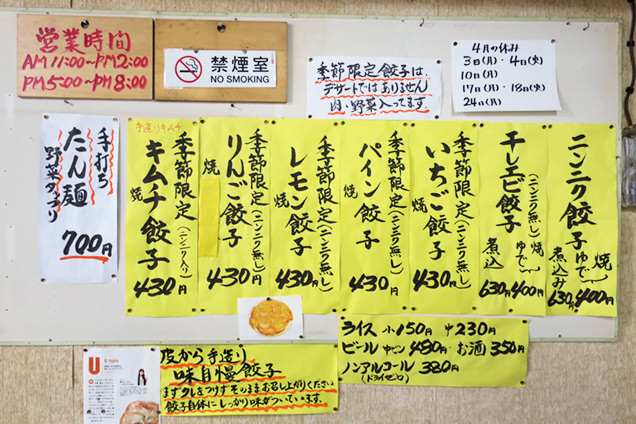 営業時間
AM 11:00〜PM 2:00
PM 5:00〜PM 8:00
禁煙室
NO SMOKING
季節限定餃子は、
デザートではありません
肉・野菜入ってます。
4月の休み
3日(月)・4日(火)
10日(月)
17日(月)・18日(火)
24日(月)
手打ち
たん麺
野菜タップリ
700円
手造りキムチ
季節限定(ニンニク入り)
キムチ餃子
焼
430円
季節限定(ニンニク無し)
りんご餃子
焼
430円
季節限定(ニンニク無し)
レモン餃子
焼
430円
季節限定(ニンニク無し)
パイン餃子
焼
430円
季節限定(ニンニク無し)
いちご餃子
焼
430円
干しエビ餃子
(ニンニク無し)
焼
ゆで
400円
煮込
630円
ニンニク餃子
焼
ゆで
400円
煮込み
630円
皮から手造り
味自慢餃子
まずタレをつけずそのままお召し上がりください
餃子自体にしっかり味がついています。
ライス 小150円 中230円
ビール 中ビン 480円・お酒 350円
ノンアルコール 380円
(ドライゼロ)
U